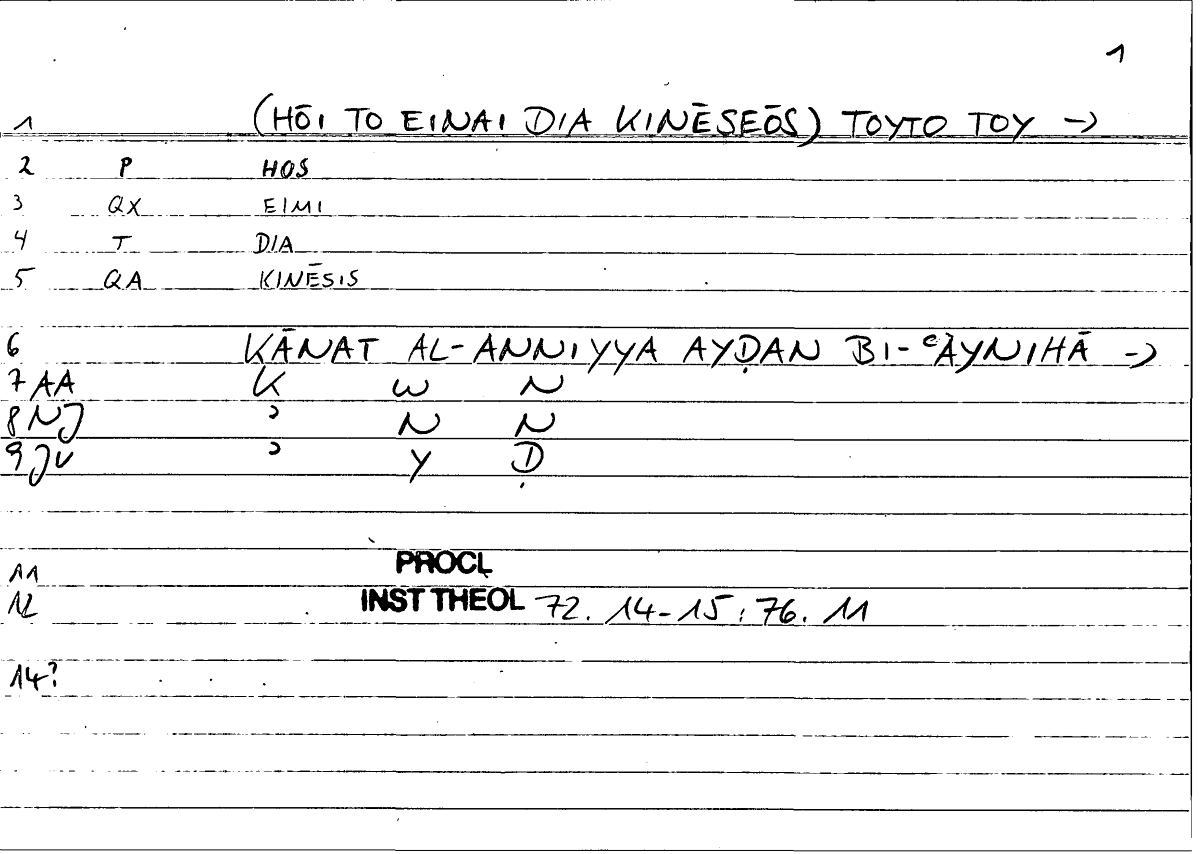 1
1 (HŌI TO EINAI DIA KINĒSEŌS) TOYTO TOY →
2 P HOS
3 QX EIMI
4 T DIA
5 QA KINĒSIS
6 KĀNAT AL-ANNIYYA AYḌAN BI-ʿAYNIHĀ →
7 AA K W N
8 NJ ʾ N N
9 JV ʾ Y Ḍ
11 PROCL
12 INST THEOL 72. 14-15 ; 76. 11
14?